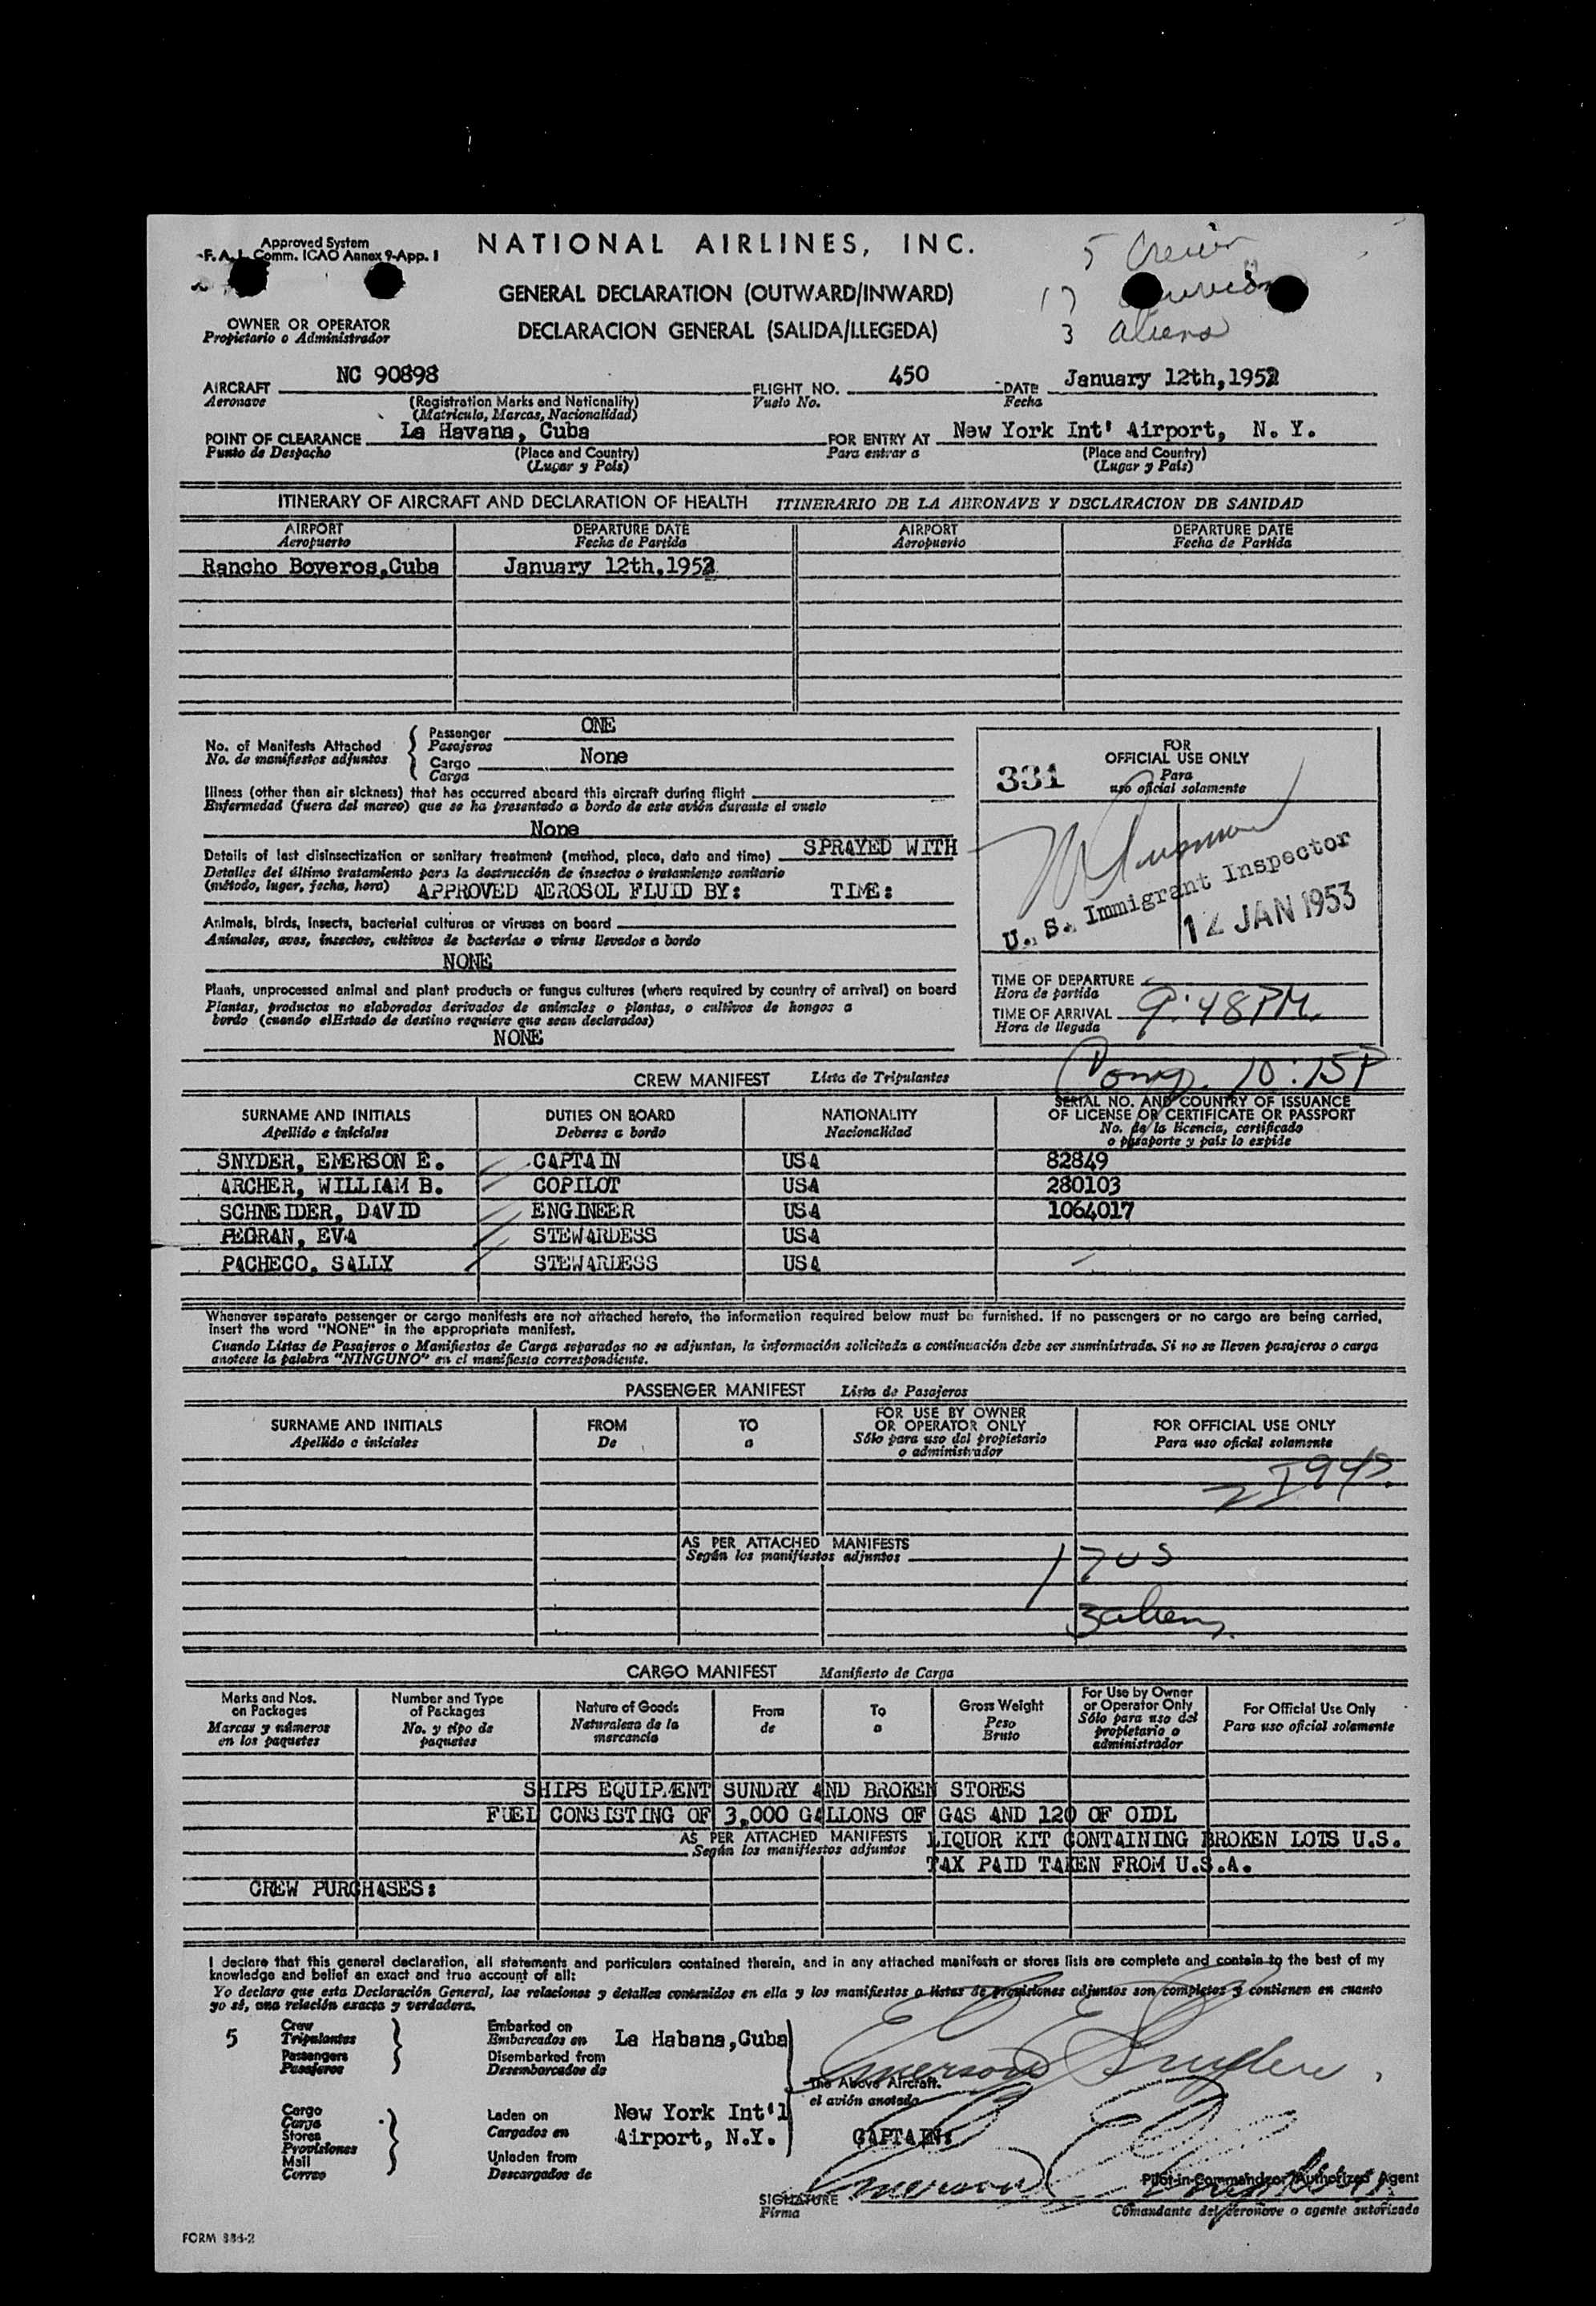 Approved System
F. A. L. Comm. ICAO Annex 9-App. 1
NATIONAL AIRLINES, INC.
5 Crew
GENERAL DECLARATION (OUTWARD/INWARD)
17
OWNER OR OPERATOR
Propietario o Administrador
DECLARACION GENERAL (SALIDA/LLEGEDA)
3 aliens
AIRCRAFT NC 90898 FLIGHT NO. 450 DATE January 12th,1952
Aeronave (Registration Marks and Nationality) Vuelo No. Fecha
(Matricula, Marcas, Nacionalidad)
POINT OF CLEARANCE La Havana, Cuba FOR ENTRY AT New York Int' Airport, N. Y.
Punto de Despacho (Place and Country) Para entrar a (Place and Country)
(Lugar y País) (Lugar y País)
ITINERARY OF AIRCRAFT AND DECLARATION OF HEALTH ITINERARIO DE LA AERONAVE Y DECLARACION DE SANIDAD
AIRPORT DEPARTURE DATE AIRPORT DEPARTURE DATE
Aeropuerto Fecha de Partida Aeropuerto Fecha de Partida
Rancho Boyeros,Cuba January 12th,1953
No. of Manifests Attached
No. de manifiestos adjuntos
Passenger ONE
Pasajeros
Cargo None
Carga
Illness (other than air sickness) that has occurred aboard this aircraft during flight
Enfermedad (fuera del mareo) que se ha presentado a bordo de este avión durante el vuelo
None
Details of last disinsectization or sanitary treatment (method, place, date and time) SPRAYED WITH
Detalles del último tratamiento para la destrucción de insectos o tratamiento sanitario
(método, lugar, fecha, hora) APPROVED AEROSOL FLUID BY: TIME:
Animals, birds, insects, bacterial cultures or viruses on board
Animales, aves, insectos, cultivos de bacterias o virus llevados a bordo
NONE
Plants, unprocessed animal and plant products or fungus cultures (where required by country of arrival) on board
Plantas, productos no elaborados derivados de animales o plantas, o cultivos de hongos a
bordo (cuando elEstado de destino requiere que sean declarados)
NONE
FOR
OFFICIAL USE ONLY
331 Para
uso oficial solamente
U. S. Immigrant Inspector
12 JAN 1953
TIME OF DEPARTURE
Hora de partida
TIME OF ARRIVAL 9:48PM.
Hora de llegada
Comp. 10:15P
CREW MANIFEST Lista de Tripulantes
SURNAME AND INITIALS DUTIES ON BOARD NATIONALITY SERIAL NO. AND COUNTRY OF ISSUANCE
OF LICENSE OR CERTIFICATE OR PASSPORT
Apellido e iniciales Deberes a bordo Nacionalidad No. de la licencia, certificado
o pasaporte y país lo expide
SNYDER, EMERSON E. CAPTAIN USA 82849
ARCHER, WILLIAM B. COPILOT USA 280103
SCHNEIDER, DAVID ENGINEER USA 1064017
PEGRAN, EVA STEWARDESS USA
PACHECO, SALLY STEWARDESS USA
Whenever separate passenger or cargo manifests are not attached hereto, the information required below must be furnished. If no passengers or no cargo are being carried,
insert the word "NONE" in the appropriate manifest.
Cuando Listas de Pasajeros o Manifiestos de Carga separados no se adjuntan, la información solicitada a continuación debe ser suministrada. Si no se lleven pasajeros o carga
anotese la palabra "NINGUNO" en el manifiesto correspondiente.
PASSENGER MANIFEST Lista de Pasajeros
SURNAME AND INITIALS FROM TO FOR USE BY OWNER
OR OPERATOR ONLY FOR OFFICIAL USE ONLY
Apellido e iniciales De a Sólo para uso del propietario
o administrador Para uso oficial solamente
AS PER ATTACHED MANIFESTS
Según los manifiestos adjuntos
17US
3 aliens
CARGO MANIFEST Manifiesto de Carga
Marks and Nos.
on Packages
Marcas y números
en los paquetes
Number and Type
of Packages
No. y tipo de
paquetes
Nature of Goods
Naturaleza de la
mercancia
From
de
To
a
Gross Weight
Peso
Bruto
For Use by Owner
or Operator Only
Sólo para uso del
propietario o
administrador
For Official Use Only
Para uso oficial solamente
SHIPS EQUIPMENT SUNDRY AND BROKEN STORES
FUEL CONSISTING OF 3,000 GALLONS OF GAS AND 120 OF OIDL
AS PER ATTACHED MANIFESTS LIQUOR KIT CONTAINING BROKEN LOTS U.S.
Según los manifiestos adjuntos
TAX PAID TAKEN FROM U.S.A.
CREW PURCHASES:
I declare that this general declaration, all statements and particulars contained therein, and in any attached manifests or stores lists are complete and contain to the best of my
knowledge and belief an exact and true account of all:
Yo declaro que esta Declaración General, las relaciones y detalles contenidos en ella y los manifiestos o listas de provisiones adjuntos son completos y contienen en cuanto
yo sé, una relación exacta y verdadera.
5 Crew
Tripulantes
Passengers
Pasajeros
Embarked on
Embarcados en La Habana,Cuba
Disembarked from
Desembarcados de
Emerson E Snyder
The Above Aircraft.
el avión anotado
Cargo
Carga
Stores
Provisiones
Mail
Correo
Laden on New York Int'l
Cargados en Airport, N.Y.
Unladen from
Descargados de
CAPTAIN:
Emerson
Pilot-in-Commander/Authorized Agent
SIGNATURE
Firma
Comandante del aeronave o agente autorizado
FORM 886-2